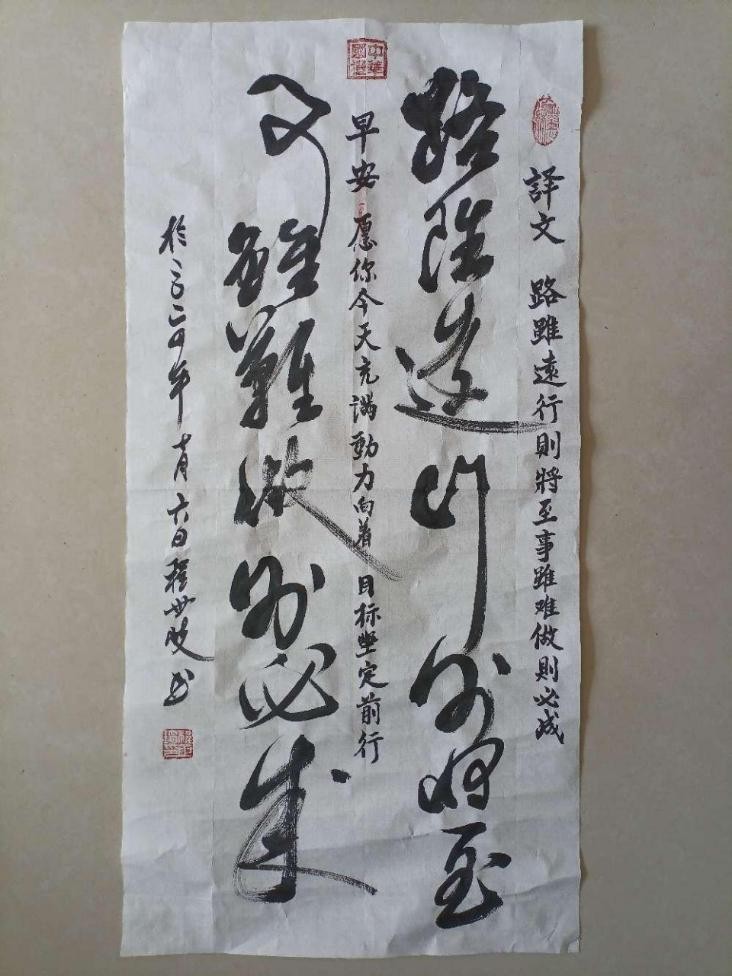 譯文 路雖遠行則將至事雖难做則必成
路雖遠行則將至
中華
早安 愿你今天充滿動力向着 目标坚定前行
事雖難做則必成
於二〇二四年十月六日程世政书